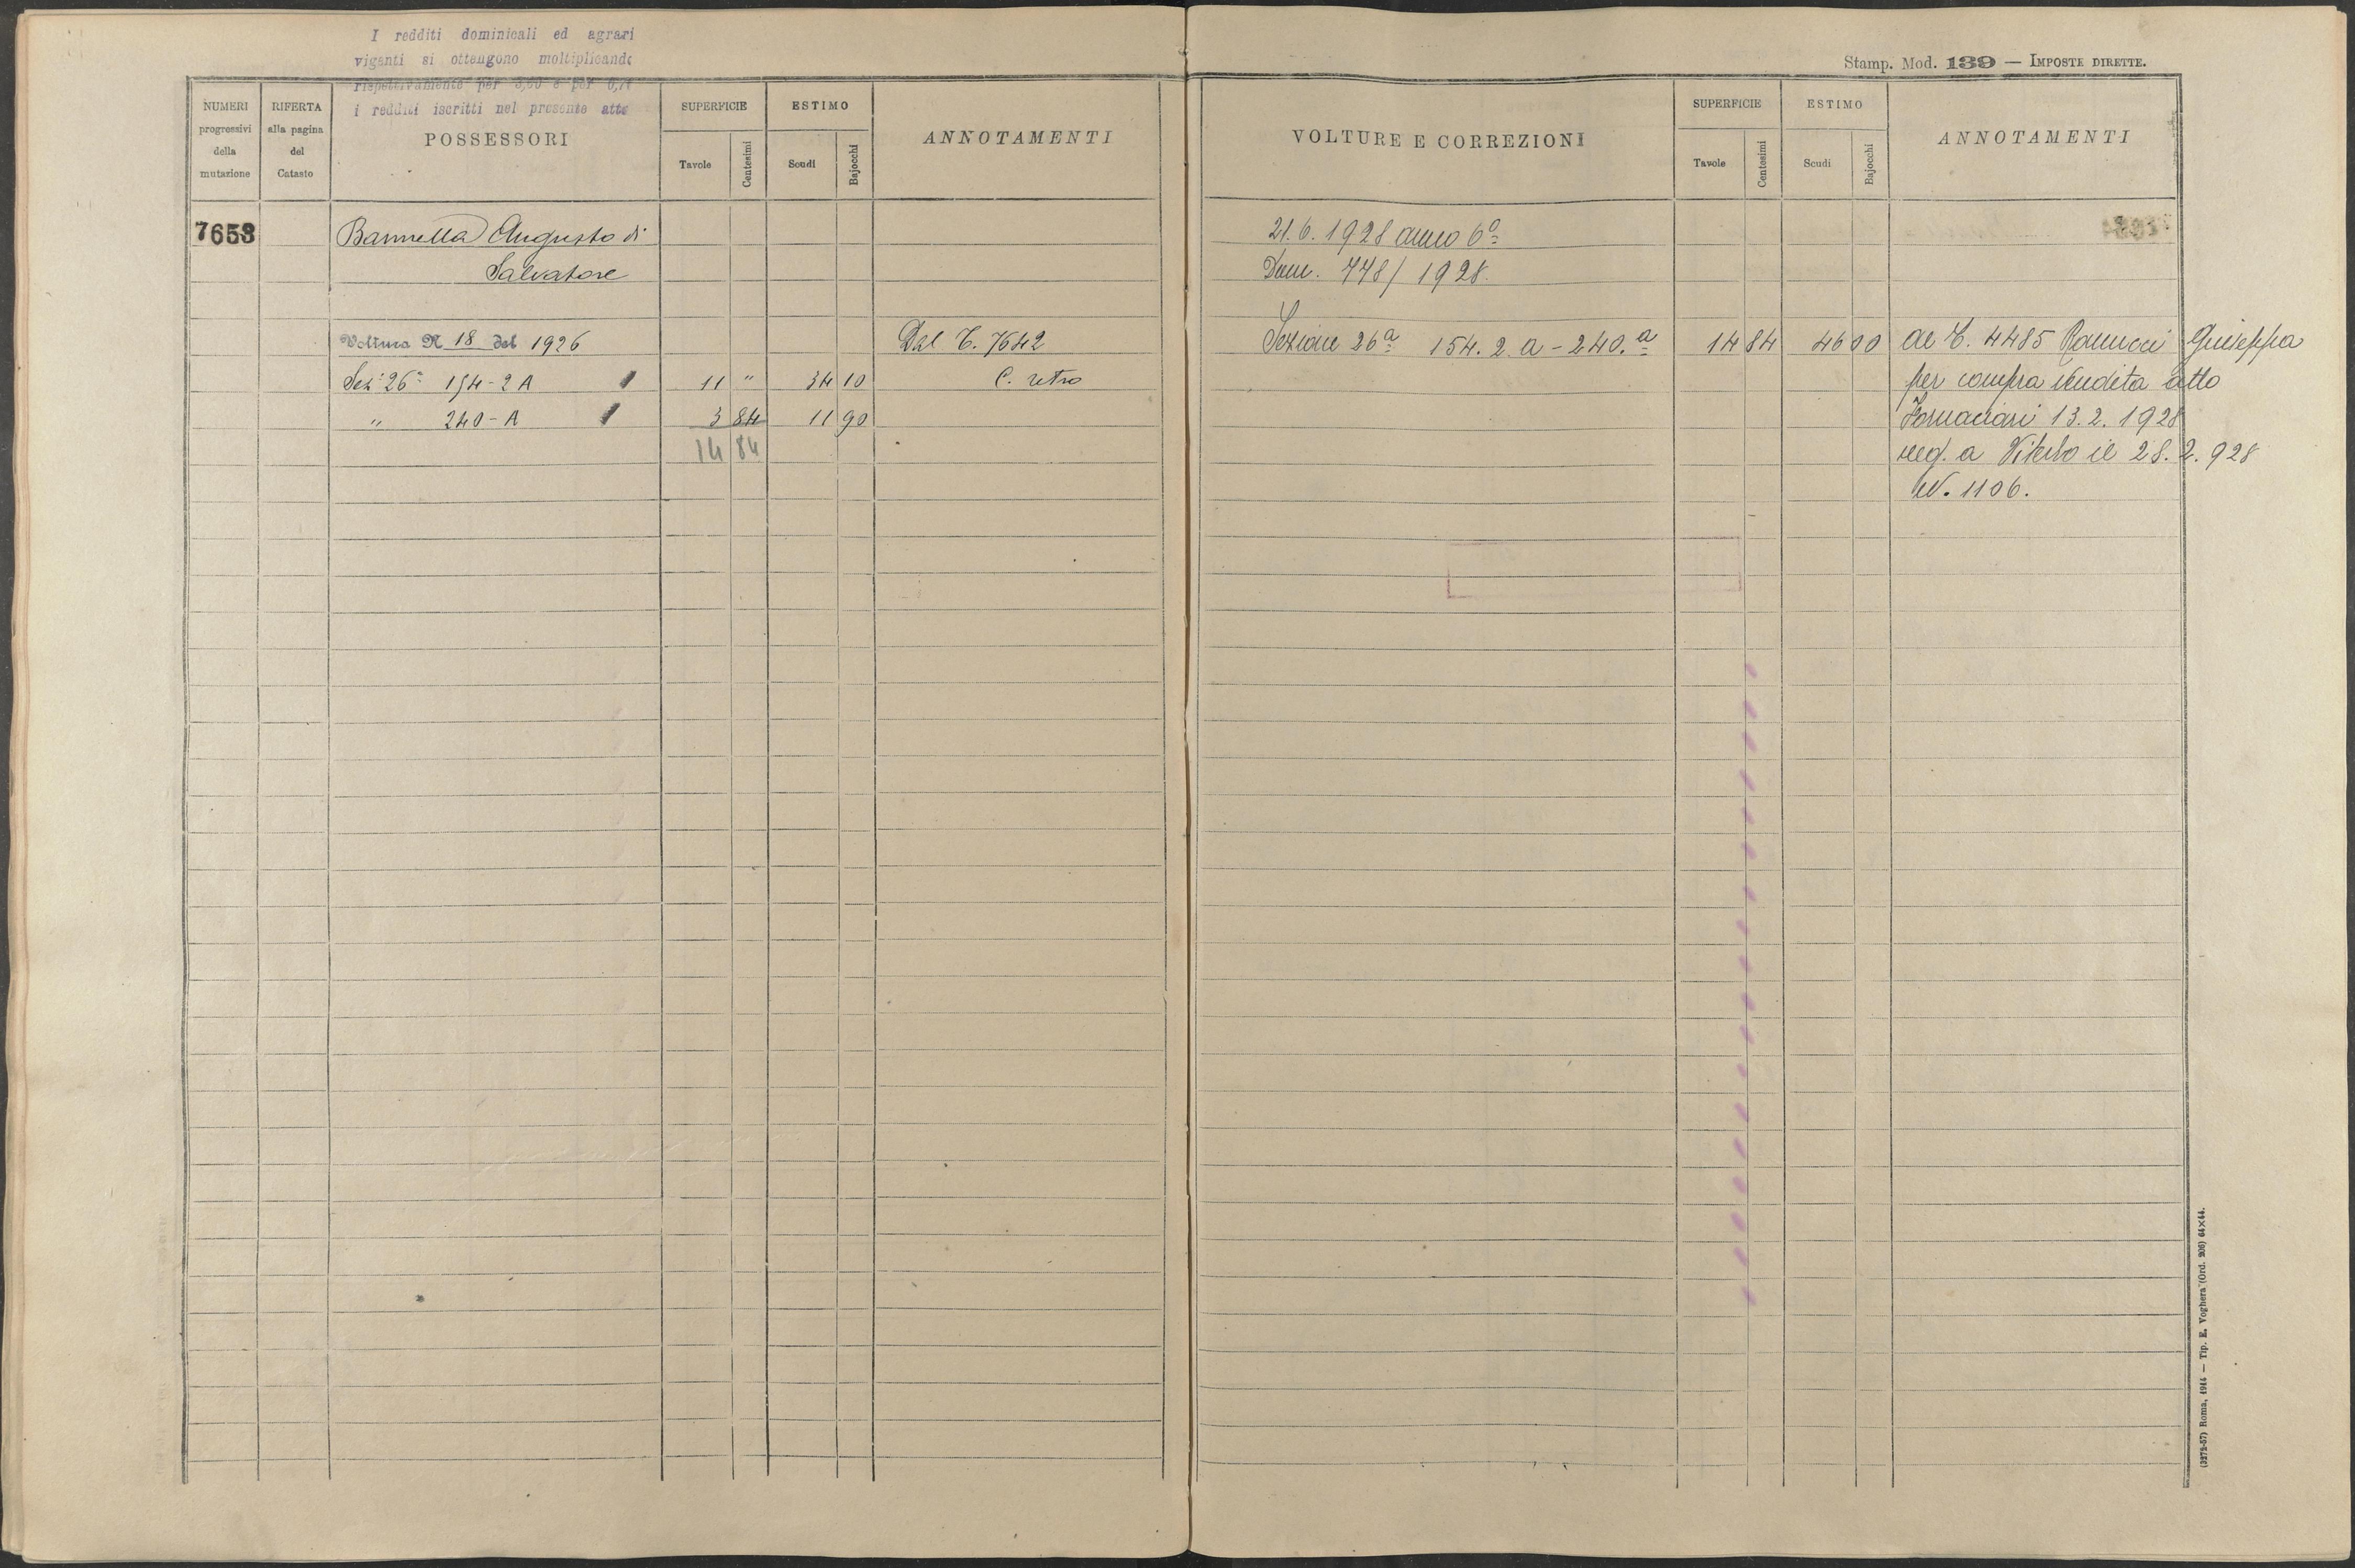 I redditi dominicali ed agrari
viganti si ottengono moltiplicando
rispettivamente per 3,60 e per 0,
i redditi iscritti nel presente atto
Stamp. Mod. 139 — IMPOSTE DIRETTE.
NUMERI progressivi della mutazione
RIFERTA alla pagina del Catasto
POSSESSORI
SUPERFICIE
Tavole
Centesimi
ESTIMO
Scudi
Bajocchi
ANNOTAMENTI
VOLTURE E CORREZIONI
SUPERFICIE
Tavole
Centesimi
ESTIMO
Scudi
Bajocchi
ANNOTAMENTI
7653 Bannella Augusto di
Salvatore
Voltura N 18 del 1926 Dal C. 7642
Sez. 26ª 154-2 A 11 " 34 10 C. retro
" 240-A 3 84 11 90
14 84
21.6.1928 anno 6º
Dom. 448/1928.
Sezione 26ª 154.2 a - 240.a 14 84 46 00 Al C. 4485 Ranucci Giuseppa
per compra vendita atto
Fornaciari 13.2.1928
reg. a Viterbo il 28.2.928
N. 1106.
(3272-57) Roma, 1914 — Tip. E. Voghera (Ord. 206) 64×44.